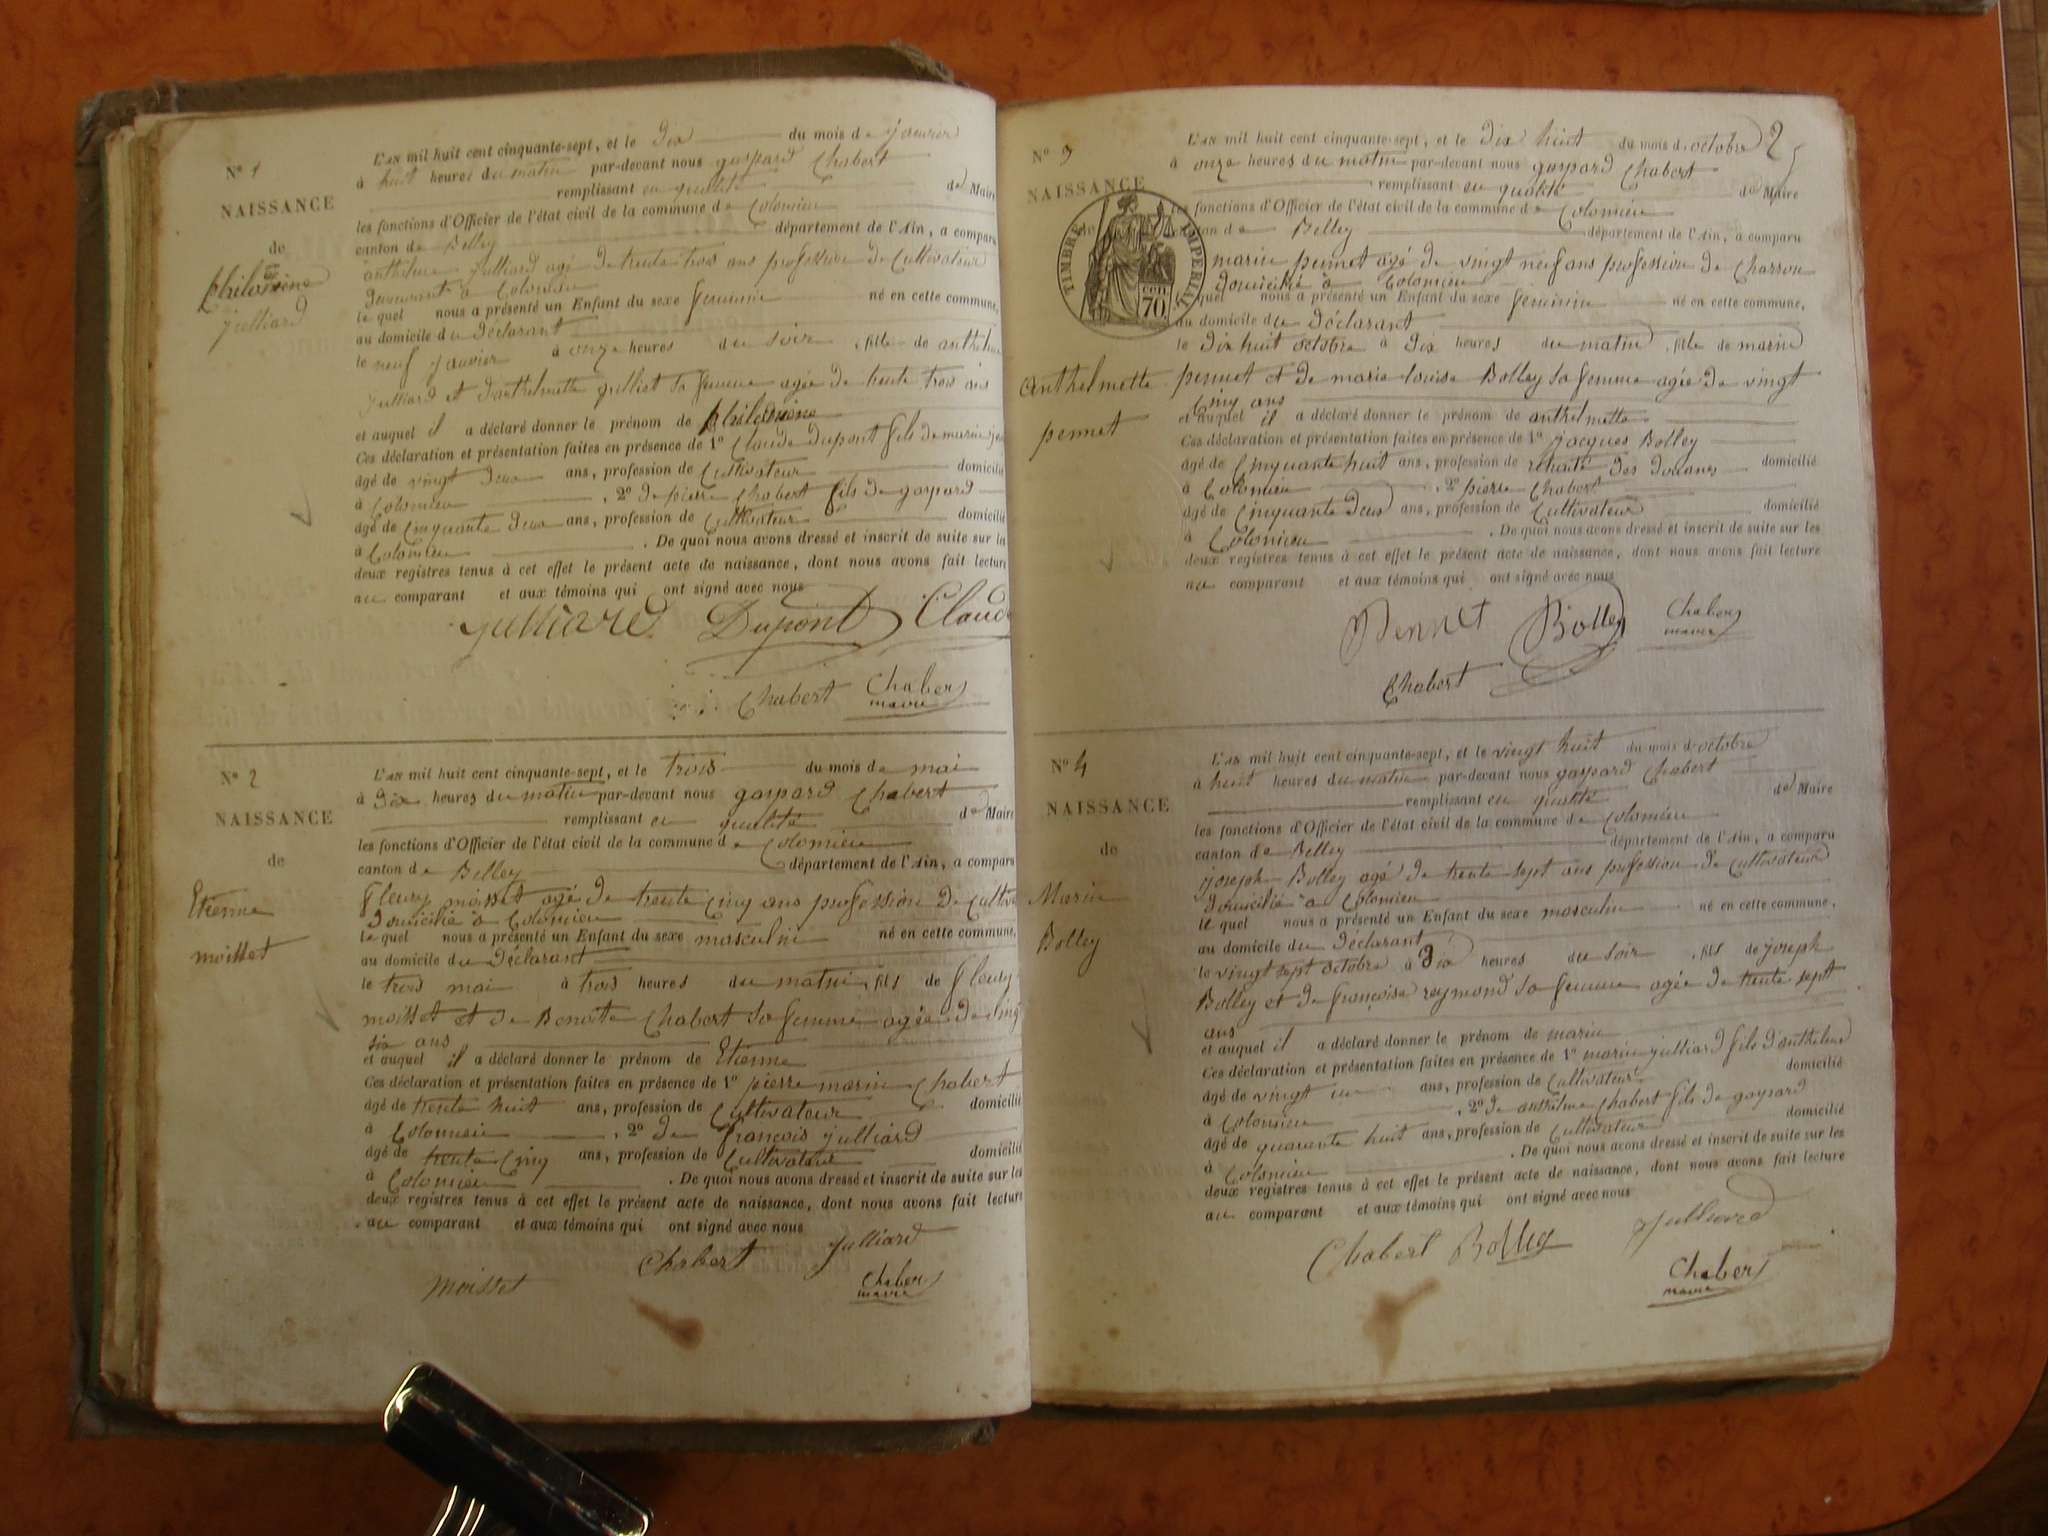 N° 1
NAISSANCE
de
philomène
julliard
L'an mil huit cent cinquante-sept, et le Dix du mois de janvier
à huit heures du matin par-devant nous gaspard Chabert
remplissant en qualité de Maire
les fonctions d'Officier de l'état civil de la commune de Colomieu
canton de Belley département de l'Ain, a comparu
anthelme julliard agé de trente trois ans profession de Cultivateur
demeurant à Colomieu
le quel nous a présenté un Enfant du sexe feminin né en cette commune,
au domicile du Déclarant
le neuf janvier à onze heures du soir, fille de anthelme
julliard et d'anthelmette julliet sa femme agée de trente trois ans
et auquel il a déclaré donner le prénom de philomène
Ces déclaration et présentation faites en présence de 1° Claude Dupont fils de marin
âgé de vingt deux ans, profession de Cultivateur domicilié
à Colomieu, 2° de pierre Chabert fils de gaspard
âgé de Cinquante deux ans, profession de Cultivateur domicilié
à Colomieu. De quoi nous avons dressé et inscrit de suite sur la
deux registres tenus à cet effet le présent acte de naissance, dont nous avons fait lecture
au comparant et aux témoins qui ont signé avec nous
julliard Dupont Claude
Chabert Chabert
maire
N° 2
NAISSANCE
de
Etienne
moisset
L'an mil huit cent cinquante-sept, et le trois du mois de mai
à Dix heures du matin par-devant nous gaspard Chabert
remplissant en qualité de Maire
les fonctions d'Officier de l'état civil de la commune de Colomieu
canton de Belley département de l'Ain, a comparu
fleury moisset agé de trente Cinq ans profession de Cultiva
Domicilié à Colomieu
le quel nous a présenté un Enfant du sexe masculin né en cette commune,
au domicile du Déclarant
le trois mai à trois heures du matin, fils de fleury
moisset et de Benoite Chabert sa femme agée de vingt
six ans
et auquel il a déclaré donner le prénom de Etienne
Ces déclaration et présentation faites en présence de 1° pierre marin Chabert
âgé de trente huit ans, profession de Cultivateur domicilié
à Colomieu, 2° de françois julliard
âgé de trente Cinq ans, profession de Cultivateur domicilié
à Colomieu. De quoi nous avons dressé et inscrit de suite sur les
deux registres tenus à cet effet le présent acte de naissance, dont nous avons fait lecture
au comparant et aux témoins qui ont signé avec nous
Chabert julliard
moisset Chabert
maire
2
N° 3
NAISSANCE
TIMBRE IMPERIAL
CEN. 70.
anthelmette
pennet
L'an mil huit cent cinquante-sept, et le Dix huit du mois d'octobre
à onze heures du matin par-devant nous gaspard Chabert
remplissant en qualité de Maire
les fonctions d'Officier de l'état civil de la commune de Colomieu
canton de Belley département de l'Ain, a comparu
marin pennet agé de vingt neuf ans profession de Charron
domicilié à Colomieu
le quel nous a présenté un Enfant du sexe feminin né en cette commune,
au domicile du Déclarant
le Dix huit octobre à Dix heures du matin, fille de marin
pennet et de marie louise Bolley sa femme agée de vingt
Cinq ans
et auquel il a déclaré donner le prénom de anthelmette
Ces déclaration et présentation faites en présence de 1° jacques Bolley
âgé de Cinquante huit ans, profession de retraité des douanes domicilié
à Colomieu, 2° pierre Chabert
âgé de Cinquante deux ans, profession de Cultivateur domicilié
à Colomieu. De quoi nous avons dressé et inscrit de suite sur les
deux registres tenus à cet effet le présent acte de naissance, dont nous avons fait lecture
au comparant et aux témoins qui ont signé avec nous
Pennet Bolley Chabert
maire
Chabert
N° 4
NAISSANCE
de
Marin
Bolley
L'an mil huit cent cinquante-sept, et le vingt huit du mois d'octobre
à huit heures du matin par-devant nous gaspard Chabert
remplissant en qualité de Maire
les fonctions d'Officier de l'état civil de la commune de Colomieu
canton de Belley département de l'Ain, a comparu
joseph Bolley agé de trente sept ans profession de Cultivateur
domicilié à Colomieu
le quel nous a présenté un Enfant du sexe masculin né en cette commune,
au domicile du Déclarant
le vingt sept octobre à Dix heures du soir, fils de joseph
Bolley et de françoise reymond sa femme agée de trente sept
ans
et auquel il a déclaré donner le prénom de marin
Ces déclaration et présentation faites en présence de 1° marin julliard fils d'anthelme
âgé de vingt un ans, profession de Cultivateur domicilié
à Colomieu, 2° de anthelme Chabert fils de gaspard
âgé de quarante huit ans, profession de Cultivateur domicilié
à Colomieu. De quoi nous avons dressé et inscrit de suite sur les
deux registres tenus à cet effet le présent acte de naissance, dont nous avons fait lecture
au comparant et aux témoins qui ont signé avec nous
Chabert Bolley julliard
Chabert
maire